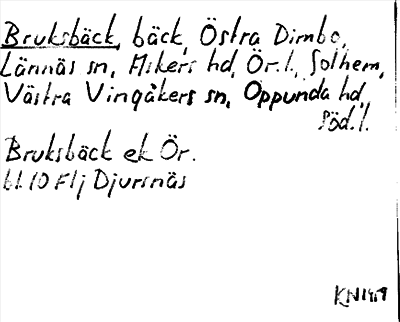 Bruksbäck, bäck, Östra Dimbo,
Lännäs sn, Askers hd, Ör.l., Solhem,
Västra Vingåkers sn, Oppunda hd,
Söd.l.
Bruksbäck ek Ör.
61.10 Flj Djursnäs